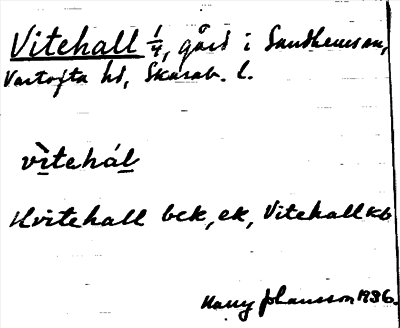 Vitehall 1/4, gård i Sandhemssn,
Vartofta hd, Skarab. l.
vìtehál
Hvitehall bck, ek, Vitehall kb
Harry Johansson 1936.